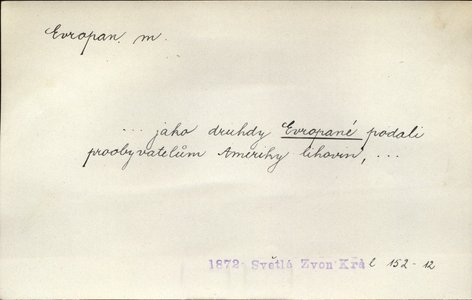 Evropan. m.
... jako druhdy Evropané podali
praobyvatelům Ameriky lihovin, ...
1872 Světlá Zvon Král 152-12